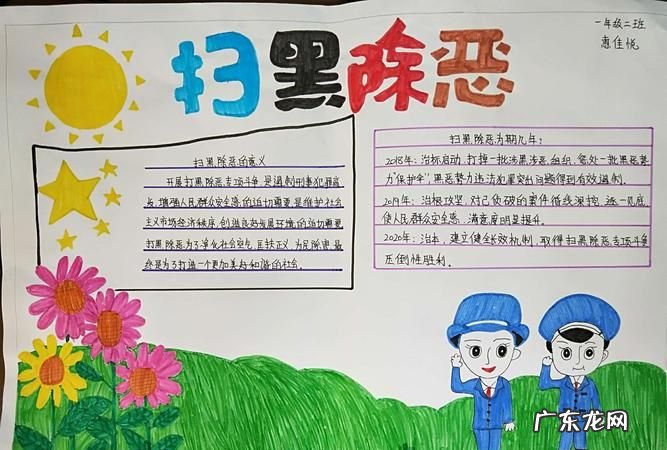 扫黑除恶
一年级二班
惠佳悦
扫黑除恶的意义
开展打黑除恶专项斗争,是遏制刑事犯罪高
点,增强人民群众安全感的迫切需要是维护社会
主义市场经济秩序,创造良好发展环境的迫切需要
打黑除恶为了净化社会空气,匡扶正义,为民除害最
终是为了打造一个更加美好和谐的社会。
扫黑除恶为期几年:
2018年:治标启动,打掉一批涉黑涉恶组织,惩处一批黑恶势
力"保护伞",黑恶势力违法犯罪突出问题得到有效遏制。
2019年:治根攻坚,对已侦破的案件循线深挖,逐一见底,
使人民群众安全感、满意度明显提升。
2020年:治本,建立健全长效机制,取得扫黑除恶专项斗争
压倒性胜利。
广东龙网